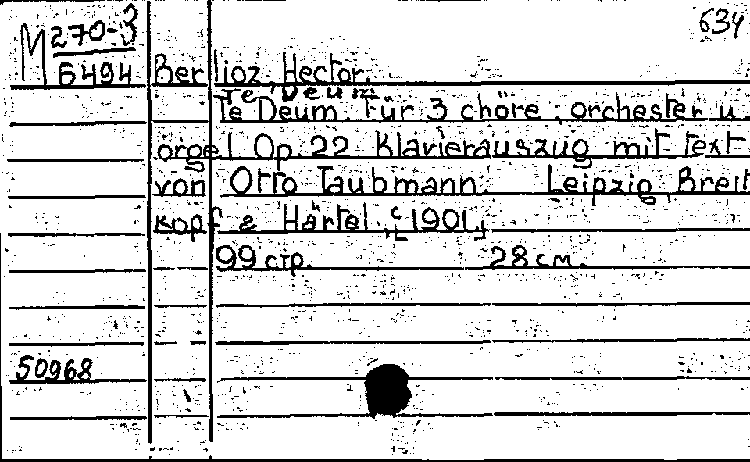 634
M 270-3
6494
Berlioz, Hector.
Te Deum
Te Deum. Für 3 chöre, orchester u
orgel Op. 22 Klavierauszug mit Text
von Otto Taubmann. Leipzig, Breit
kopf & Härtel, [c1901]
99 стр. 28 см.
50968